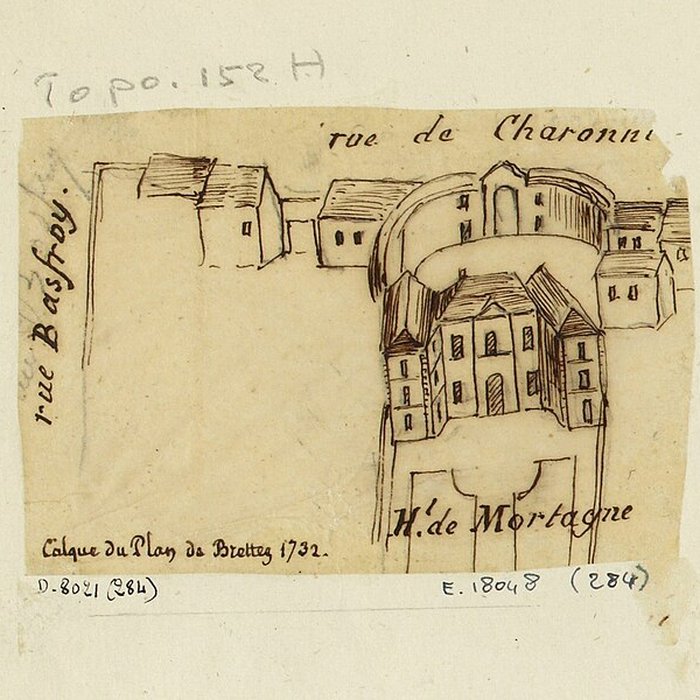 Topo. 152 H
rue de Charonne
rue Basfroy.
Ht. de Mortagne
Calque du Plan de Brettez 1732.
D-8021 (284)
E. 18048 (284)